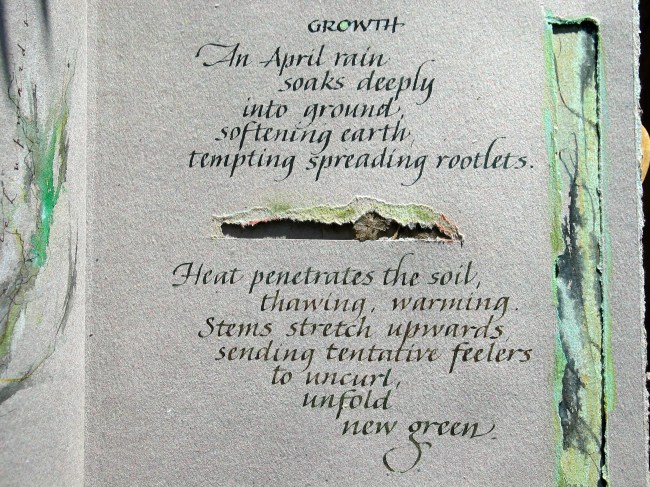 GROWTH
An April rain
soaks deeply
into ground,
softening earth,
tempting spreading rootlets.
Heat penetrates the soil,
thawing, warming.
Stems stretch upwards,
sending tentative feelers
to uncurl,
unfold
new green.